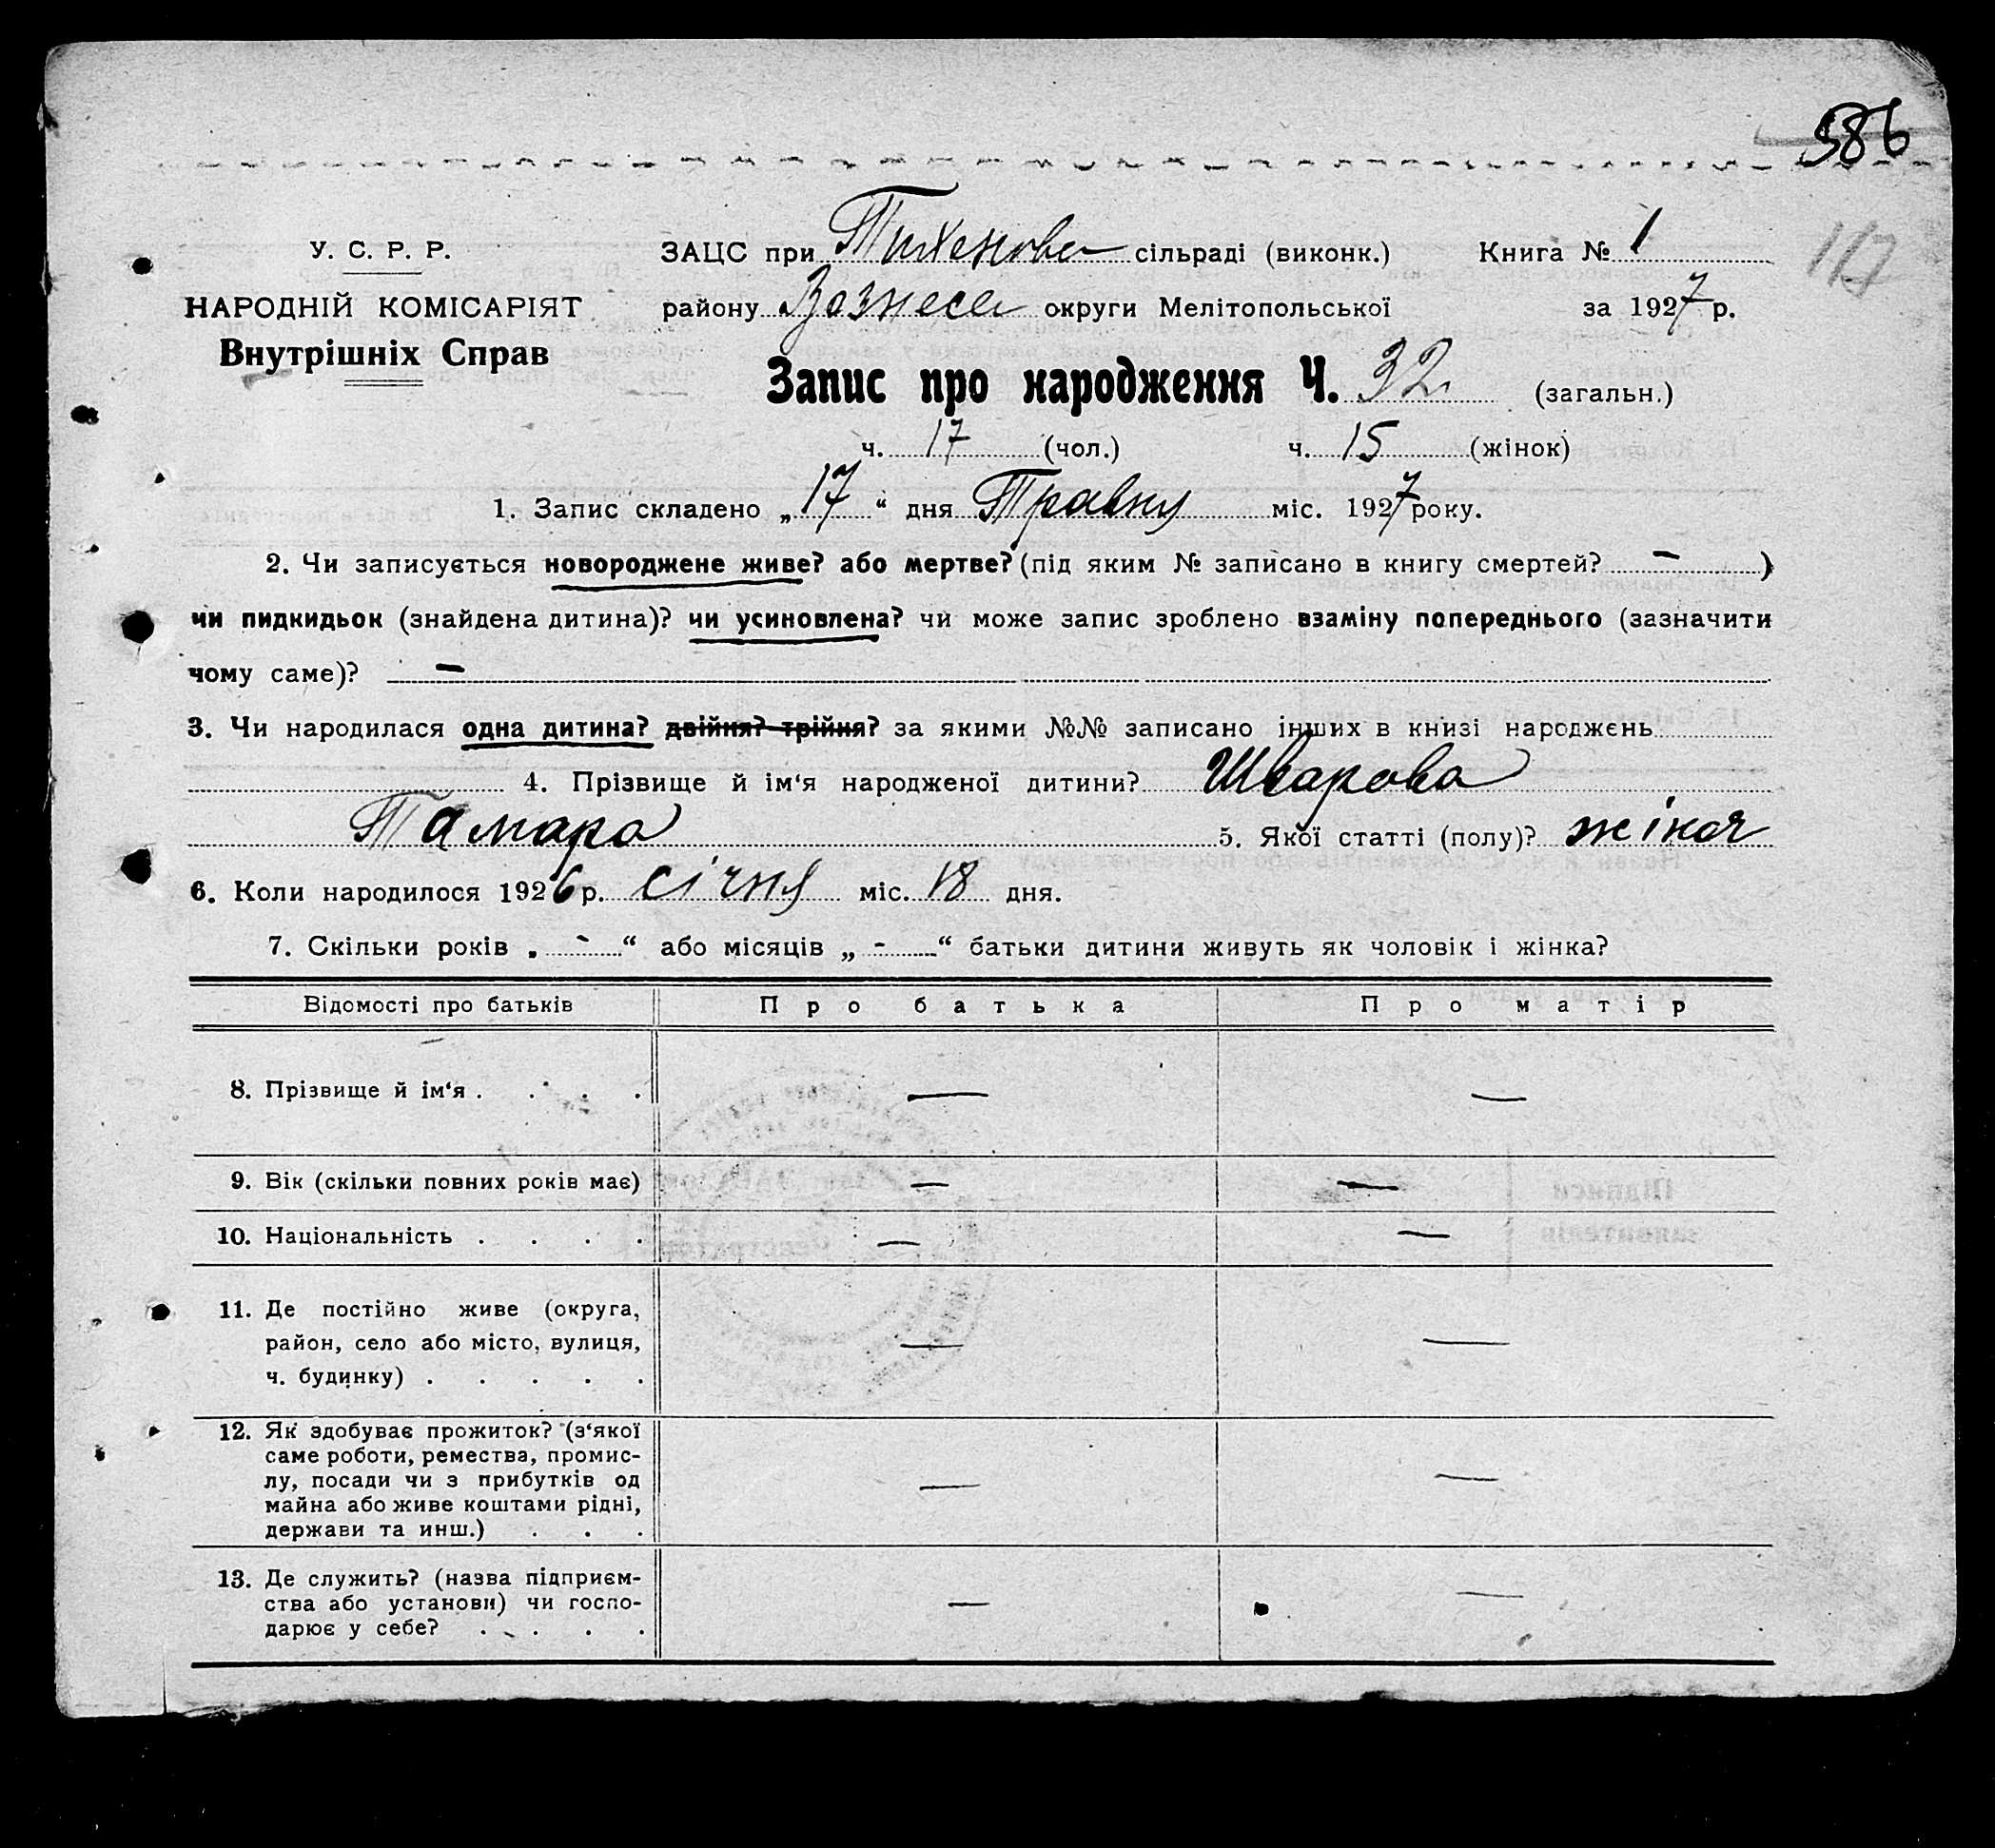 586
117
У. С. Р. Р.
НАРОДНІЙ КОМІСАРІЯТ
Внутрішніх Справ
ЗАЦС при Тихонова сільраді (виконк.) Книга № 1
району Вознесен округи Мелітопольської за 1927 р.
Запис про народження Ч. 32 (загальн.)
ч. 17 (чол.) ч. 15 (жінок)
1. Запис складено „17“ дня Травня міс. 1927 року.
2. Чи записується новороджене живе? або мертве? (під яким № записано в книгу смертей? — )
чи пидкидьок (знайдена дитина)? чи усиновлена? чи може запис зроблено взаміну попереднього (зазначити
чому саме)? —
3. Чи народилася одна дитина? двійня? трійня? за якими №№ записано інших в книзі народжень
4. Прізвище й ім‘я народженої дитини? Шварова
Тамара 5. Якої статті (полу)? жіноч
6. Коли народилося 1926 р. січня міс. 18 дня.
7. Скільки років „ - “ або місяців „ - “ батьки дитини живуть як чоловік і жінка?
Відомості про батьків Про батька Про матір
8. Прізвище й ім‘я . . . . — —
9. Вік (скільки повних років має) — —
10. Національність . . . . — —
11. Де постійно живе (округа,
район, село або місто, вулиця,
ч. будинку) . . . . . — —
12. Як здобуває прожиток? (з‘якої
саме роботи, ремества, промис-
лу, посади чи з прибутків од
майна або живе коштами рідні,
держави та инш.) . . . — —
13. Де служить? (назва підприєм-
ства або установи) чи госпо-
дарює у себе? . . . . — —